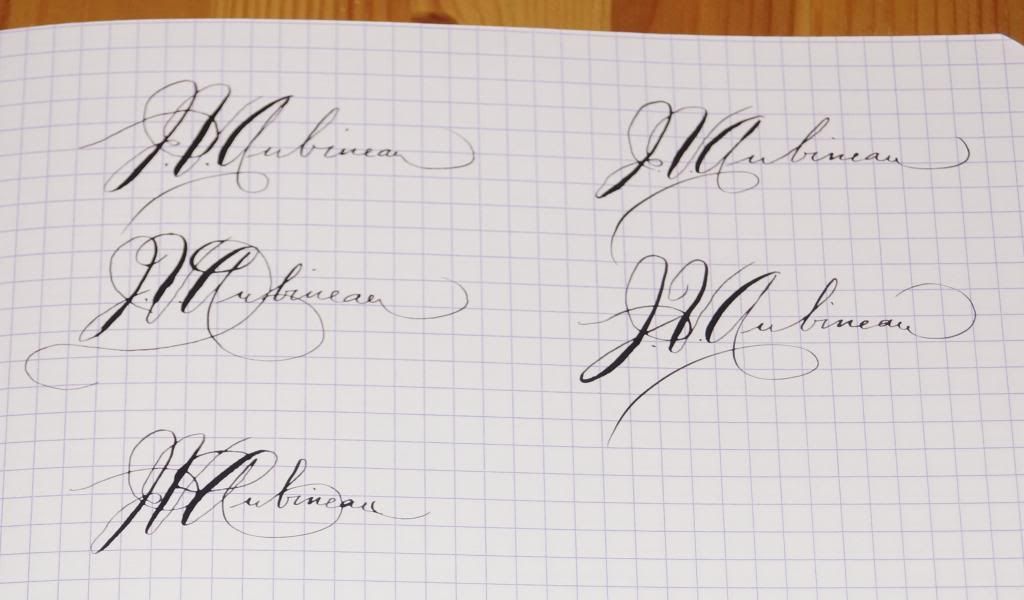 J.V.Aubineau J.V.Aubineau
J.V.Aubineau J.V.Aubineau
J.V.Aubineau